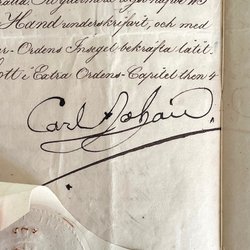 Hand underskrifvit, och med
Ordens Insegel bekräfta låtit.
i Extra Ordens-Capitel then 4
Carl Johan